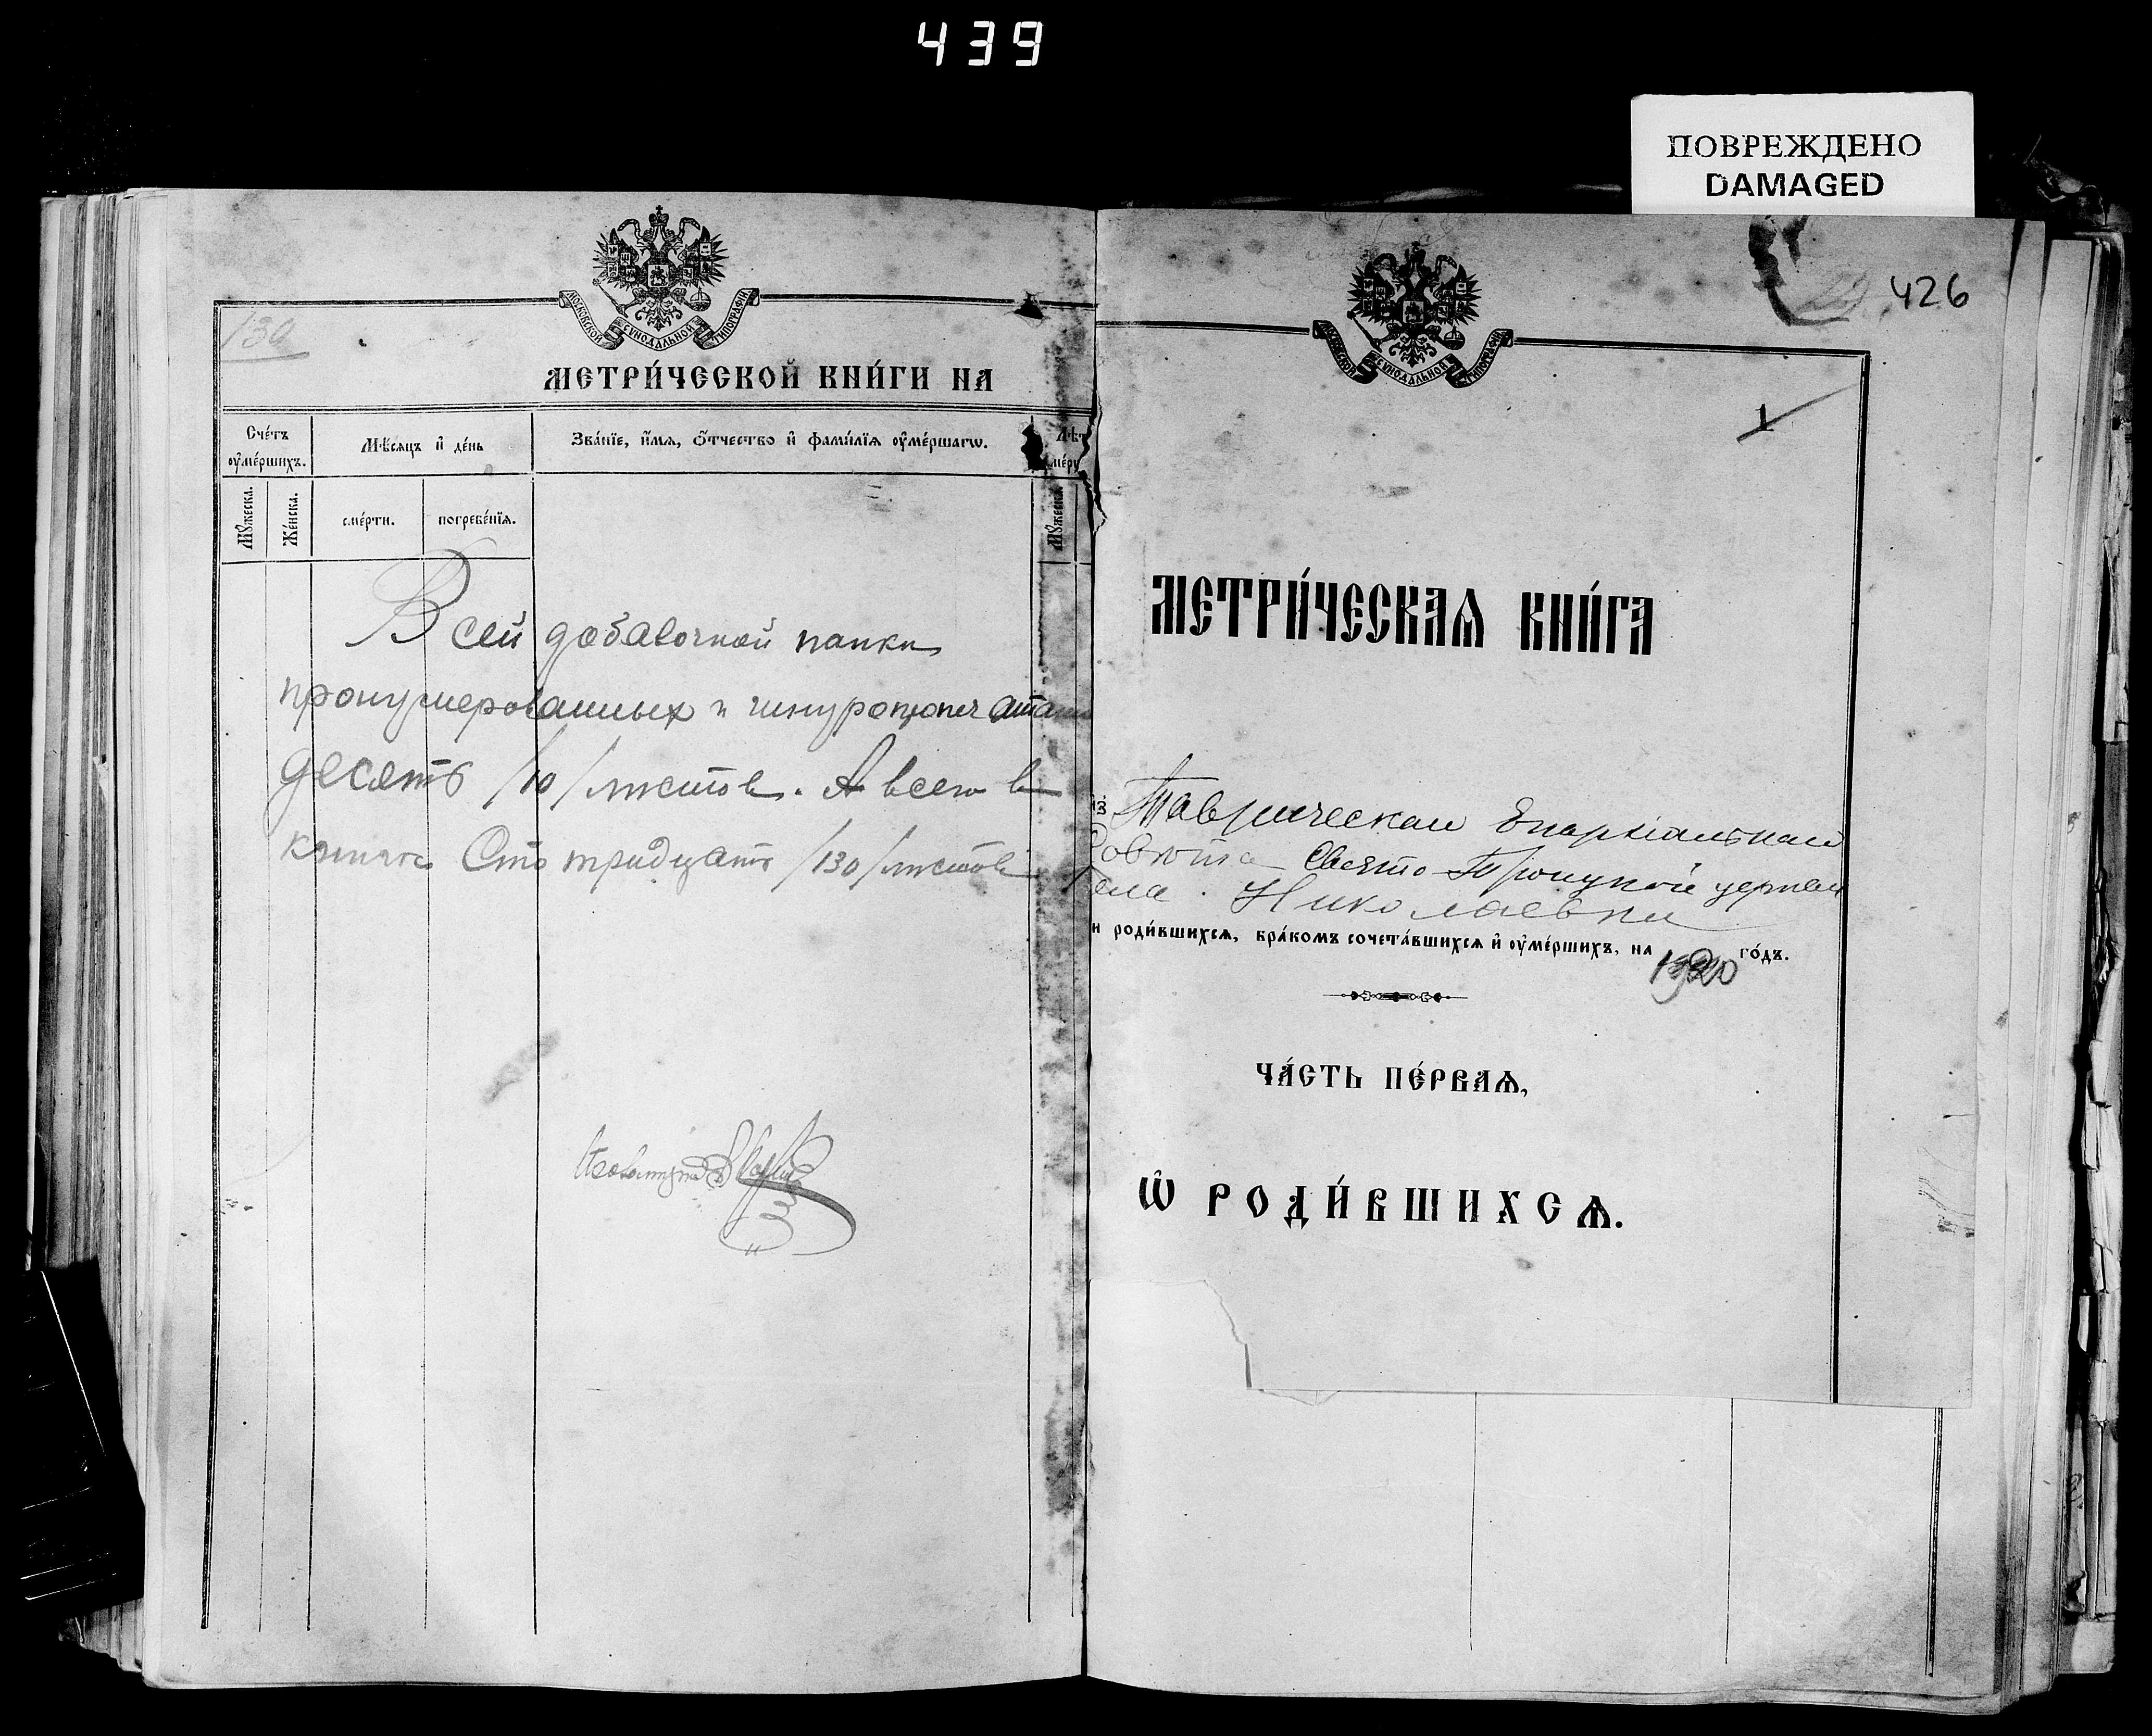 439
ПОВРЕЖДЕНО
DAMAGED
130
МОСКОВСКОЙ СѴНОДАЛЬНОЙ ТИПОГРАФІИ
МЕТРИ́ЧЕСКОЙ КНИ́ГИ НА
Сче́тъ ᲂу҆ме́ршихъ.
Мѣ́сяцъ и҆ де́нь
Зва́нїе, и҆́мѧ, ѻ҆́тчество и҆ фами́лїѧ ᲂу҆ме́ршагѡ.
Мꙋ́жеска.
Же́нска.
сме́рти.
погребе́нїѧ.
Мꙋ́жеска
В сей добавочной папки
пронумерованных и шнуропропечатан
десять /10/ листов. А всего в
книге Сто тридцать /130/ листов
426
МОСКОВСКОЙ СѴНОДАЛЬНОЙ ТИПОГРАФІИ
1
МЕТРИ́ЧЕСКАѦ КНИ́ГА
из Таврической Епархіальной
Совѣта Свято-Троицкой церкви
села Николаевки
роди́вшихсѧ, бра́комъ сочета́вшихсѧ и҆ ᲂу҆ме́ршихъ, на 1920 го́дъ.
ЧА́СТЬ ПЕ́РВАѦ,
Ѡ҆ РОДИ́ВШИХСѦ.